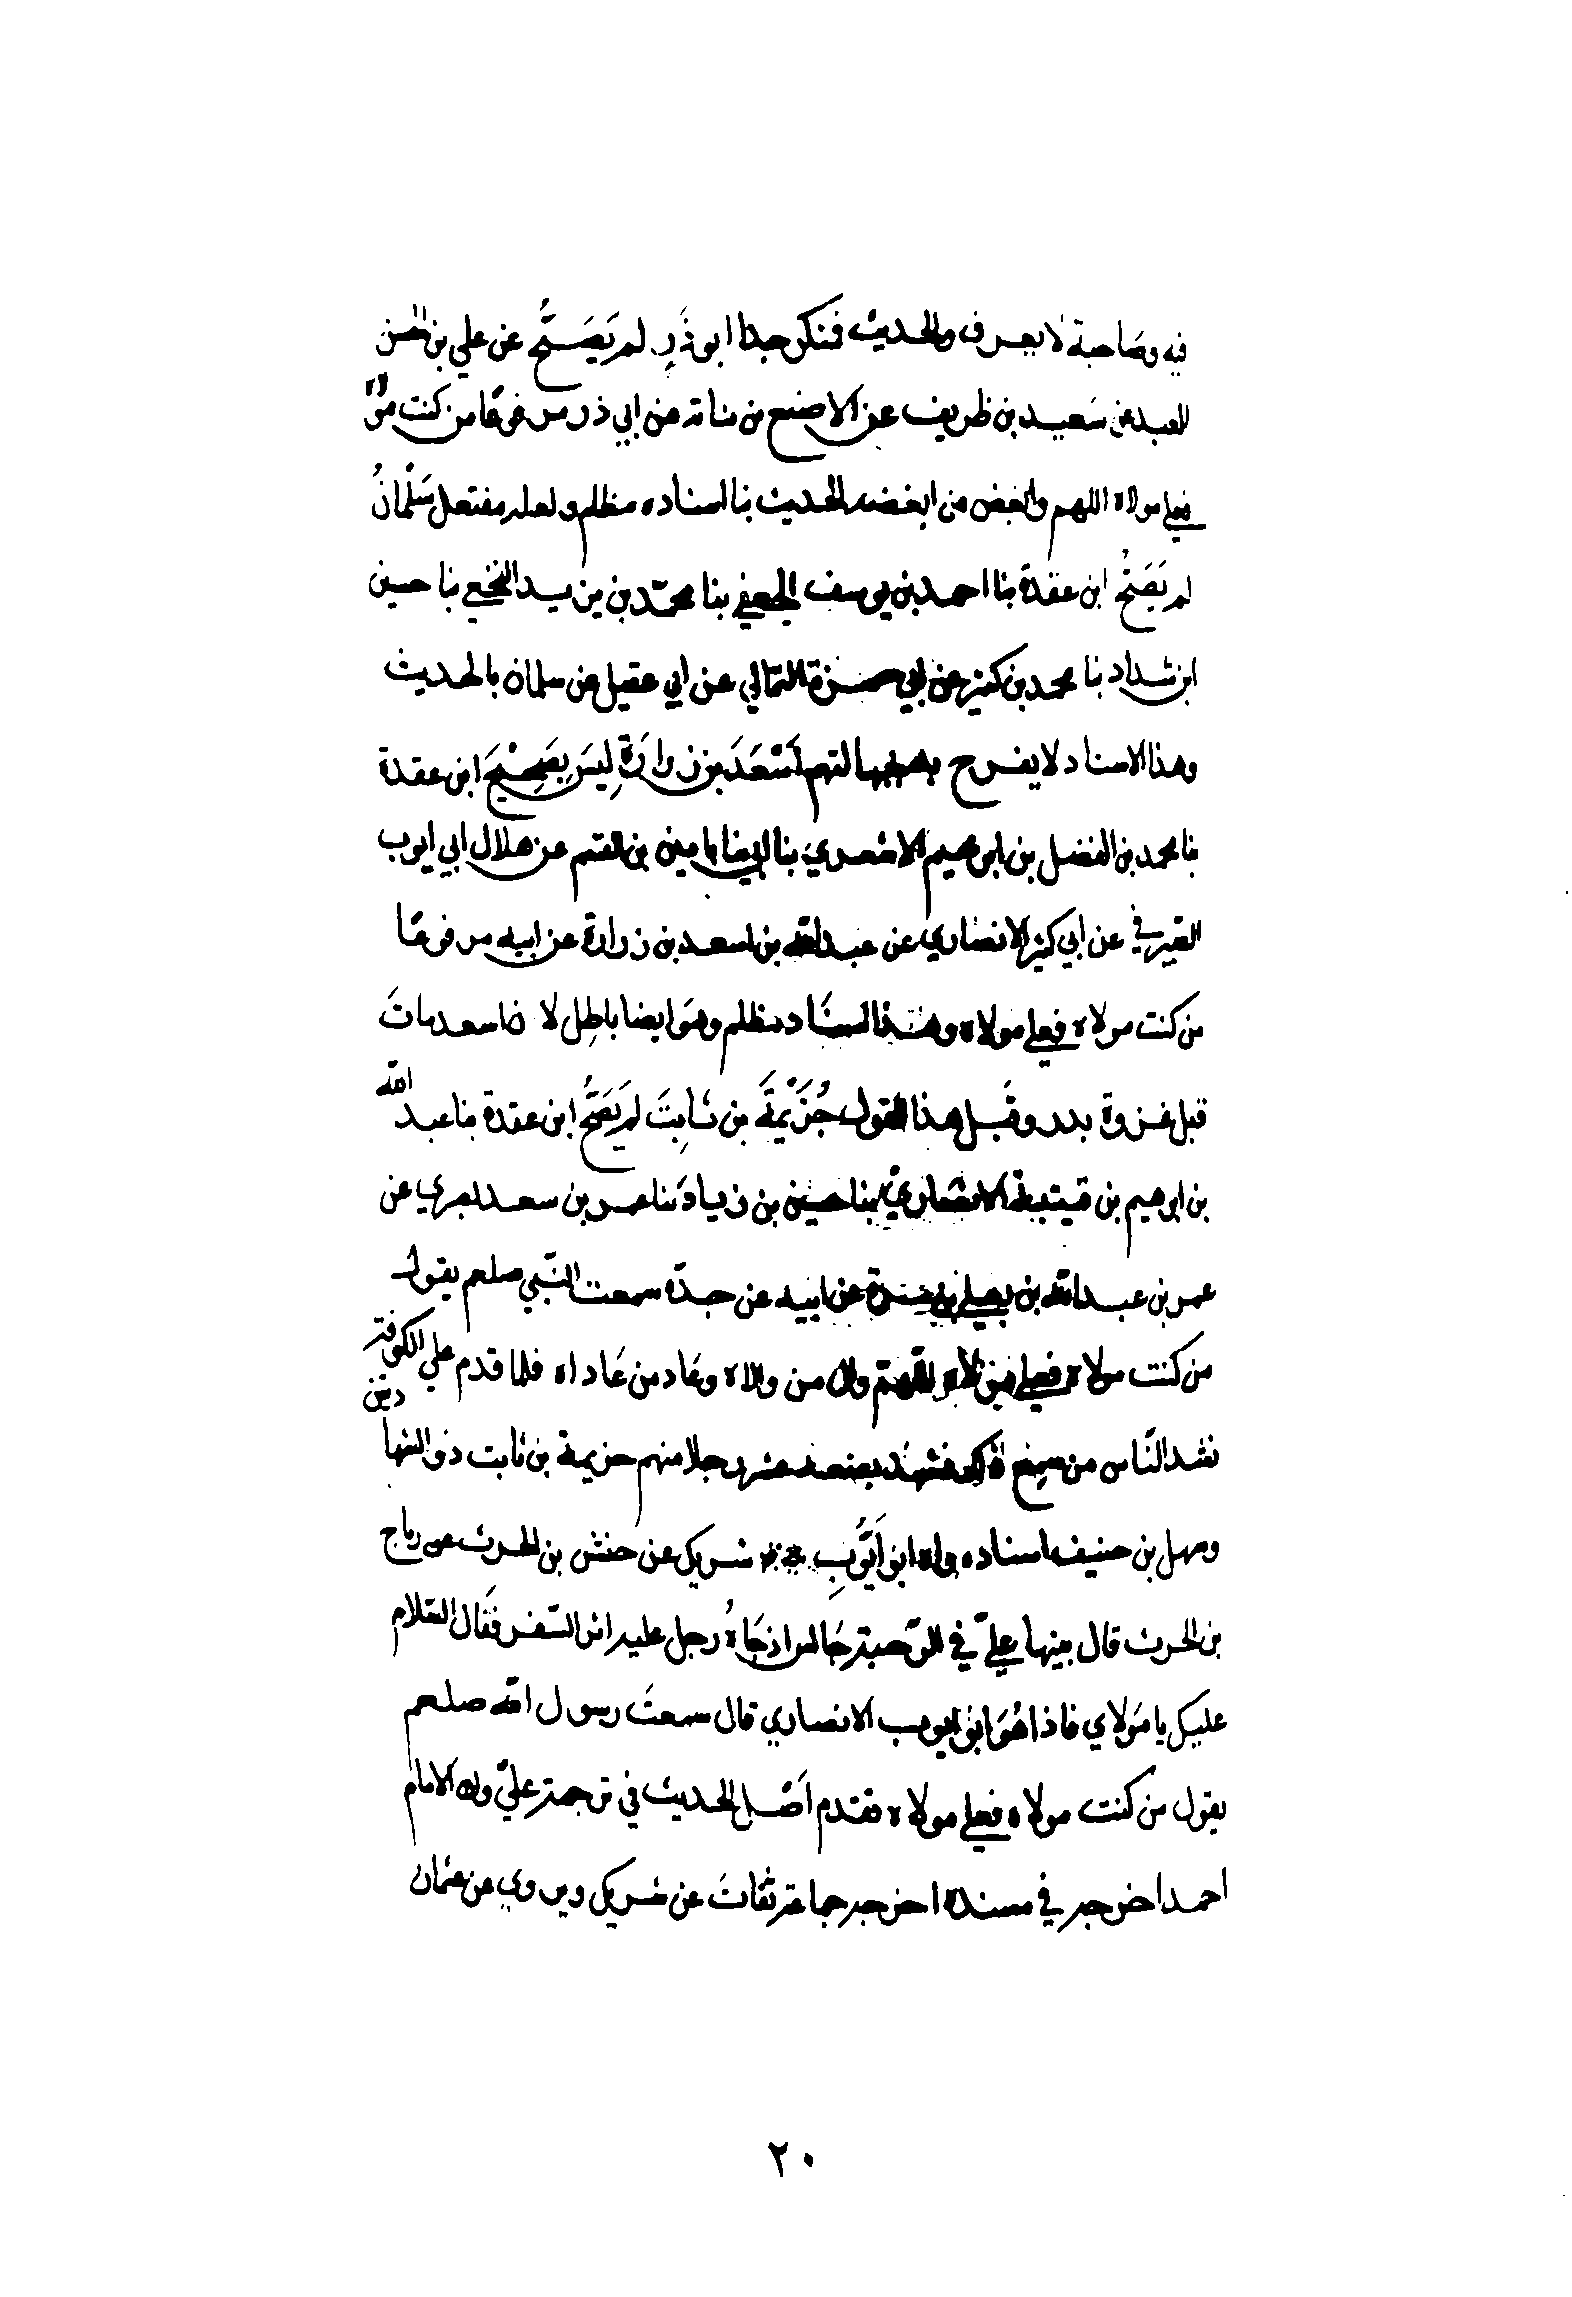 فيه وصاحبة لا يعرف والحديث فمنكر جدا ابو ذَرٍ لم يَصَحُّ عن علي بن الحسن
العبد عن سَعيد بن ظريف عن الاصبع بن نباته عن ابي ذر مرفوعًا من كنت مولا
فعلي مولاه اللهم وابغض من ابغضه الحديث بنا اسناده مظلم ولعله مفتعل سَلْمانُ
لم يَصَحُّ ابن عقدة بنا احمد بن يوسف الجعفي بنا محمّد بن يزيد النخعي بنا حسين
ابن شداد بنا محمد بن كثير عن ابي حمزة الثمالي عن ابي عقيل عن سلمان بالحديث
وهذا الاسناد لا يفرح به اَسْعَدَ بن زرارَةِ ليسَ بِصَحِيْحَ ابن عقدة
بنا محمد بن الفضل بن ابرهيم الاشعري بنا بن القسم عن هلال ابي ايوب
الصيرفي عن ابي كثير الانصاري عن عبد الله بن اسعد بن زرارة عن ابيه مرفوعًا
من كنت مولاه فعلي مولاه وهذا اسنَاد مظلم وهوَ ايضا باطِل لا ن اسعد ماتَ
قبل غزوة بدر وقَبل هذا القول خُزَيْمَةَ بن ثابِتَ لم يَصَحُّ ابن عقدة بنا عبد الله
بن ابرهيم بن قتيبة الانصاريّ بنا حسين بن زيادَ بنا عمر بن سعد لبصري عن
عمر بن عبد الله بن يعلي بن مرة عن ابيه عن جدّه سمعت النّبي صلعم يقول
من كنت مولاه فعلي مولاه اللّهمّ وال من والاه وعَاد من عَاداه فلما قدم علي الكوفة
نشد النّاس من سمع ذلك فشهد بضعه عشر رجلا منهم خزيمة بن ثابت ذو الشهادتين
وسهل بن حنيف اسناده واه ابو اَيُّوبِ شريك عن حنش بن الحرث عن رباح
بن الحرث قال بينهما عليّ في الرّحبة جَالس اذ جَاهُ رجل عليه اثر السّفر فقَال السّلام
عليك يا مَولاي فاذا هُوَ ابو ايوب الانصاري قال سمعتَ رسول الله صلعم
يقول من كنت مولاه فعلي مولاه فقدم اَصْل الحديث في ترجمة عليّ وله الامام
احمد اخرجه في مسنده اخرجه جماعة ثقاتَ عن شريك ويروي عن عثمان
٢٠